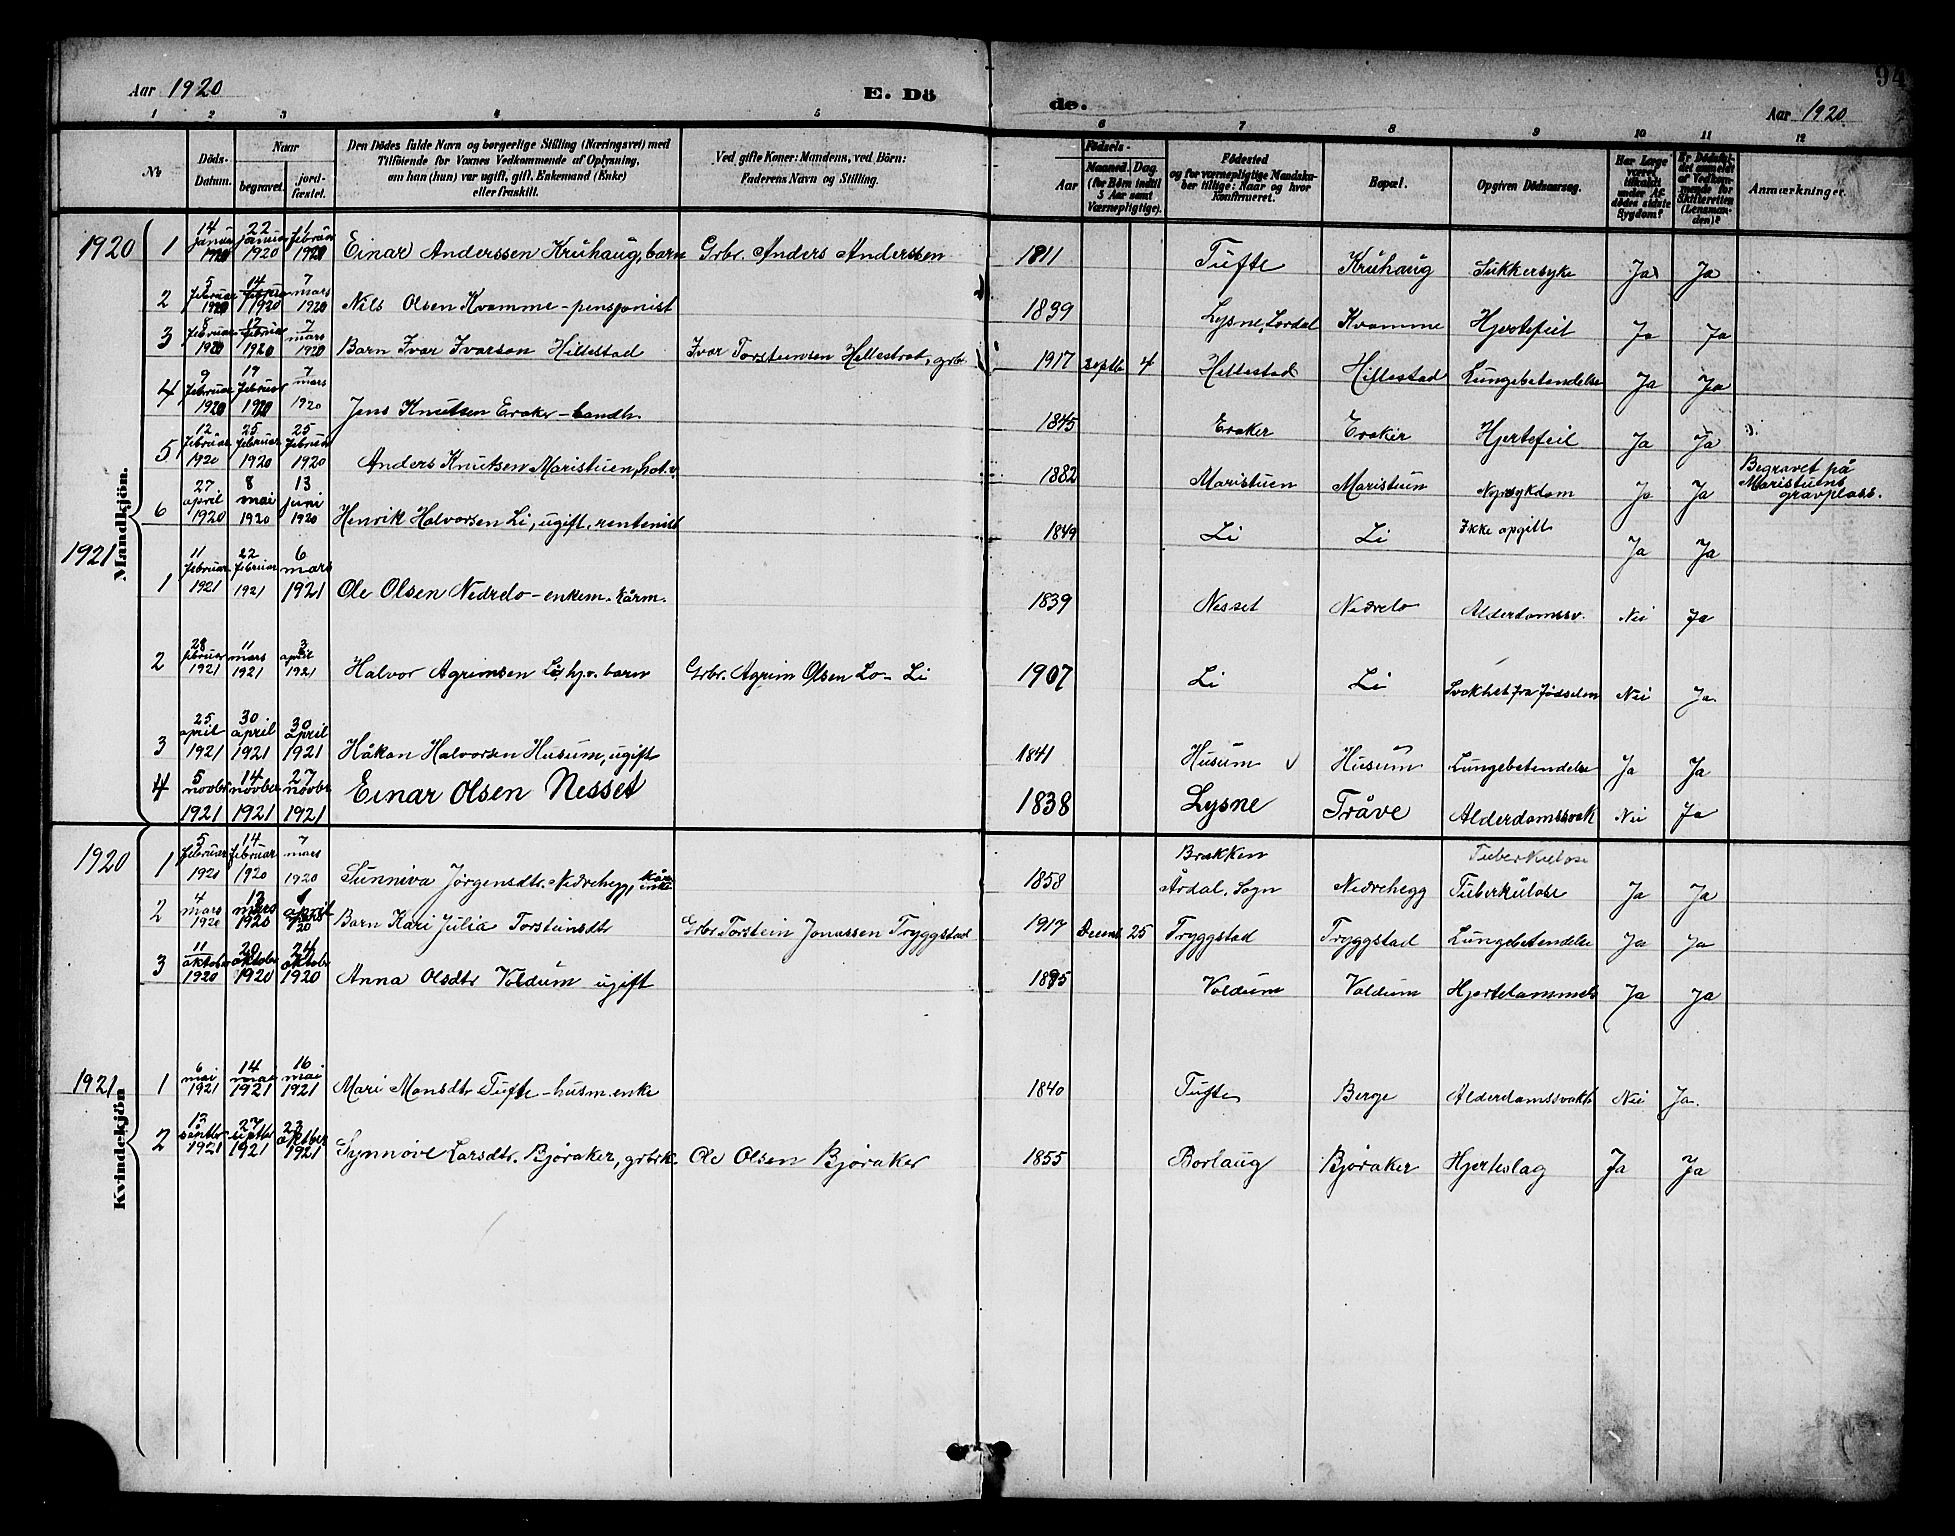 Aar 1920 E. Dö de. Aar 1920 94
1 2 3 4 5 6 7 8 9 10 11 12
№ Döds-Datum. Naar begravet. jordfæstet. Den Dödes fulde Navn og borgerlige Stilling (Næringsvei) med Tilföiende for Voxnes Vedkommende af Oplysning, om han (hun) var ugift, gift, Enkemand (Enke) eller fraskilt. Ved gifte Koner: Mandens, ved Börn: Faderens Navn og Stilling. Födsels- Aar Maaned. Dag. (for Börn indtil 5 Aar samt Værnepligtige). Födested og for værnepligtige Mandskaber tillige: Naar og hvor Konfirmeret. Bopæl. Opgiven Dödsaarsag. Har Læge været tilkaldt under Afdödes sidste Sygdom? Er Dödsfaldet anmeldt af Vedkommende for Skifteretten (Lensmanden)? Anmærkninger.
Mandkjön.
1920 1 14 januar 1920 22 januar 1920 1 februar 1920 Einar Anderssen Kruhaug, barn Grbr. Anders Anderssen 1911 Tufte Kruhaug Sukkersyke Ja Ja
2 5 februar 1920 14 februar 1920 7 mars 1920 Nils Olsen Kvamme - pensjonist 1839 Lysne, Lærdal Kvamme Hjertefeil Ja Ja
3 8 februar 1920 17 februar 1920 7 mars 1920 Barn Ivar Ivarson Hillestad Ivar Torsteinsen Hillestad, grbr. 1917 septb 4 Hillestad Hillestad Lungebetendelse Ja Ja
4 9 februar 1920 19 februar 1920 7 mars 1920 Jens Knutsen Eraker - landh. 1845 Eraker Eraker Hjertefeil Ja Ja
5 12 februar 1920 25 februar 1920 25 februar 1920 Anders Knutsen Maristuen, hot.v. 1882 Maristuen Maristuen Nyresykdom Ja Ja Begravet på Maristuens gravplass.
6 27 april 1920 8 mai 1920 13 juni 1920 Henrik Halvorsen Li, ugift, rentenist 1849 Li Li Ikke opgitt Ja Ja
1921 1 11 februar 1921 22 februar 1921 6 mars 1921 Ole Olsen Nedrelo - enkem. kårm. 1839 Nesset Nedrelo Alderdomssv. Nei Ja
2 28 februar 1921 11 mars 1921 3 april 1921 Halvor Agrimsen Li, hj.v. barn Grbr. Agrim Olsen Lo - Li 1907 Li Li Svakhet fra fødselen Nei Ja
3 25 april 1921 30 april 1921 30 april 1921 Håkon Halvorsen Husum, ugift 1841 Husum Husum Lungebetendelse Ja Ja
4 5 novbr 1921 14 novbr 1921 27 novbr 1921 Einar Olsen Nesset 1838 Lysne Tråve Alderdomssvak Nei Ja
Kvindekjön
1920 1 5 februar 1920 14 februar 1920 7 mars 1920 Sunniva Jørgensdtr. Nedrehegg, kår enke 1858 Brækken Årdal, Sogn Nedrehegg Tuberkulose Tuberkulose Ja Ja
2 4 mars 1920 13 mars 1920 april 1920 Barn Kari Julia Torsteinsdtr Grbr Torstein Jonassen Tryggstad 1917 Decemb 25 Tryggstad Tryggstad Lungebetendelse Ja Ja
3 11 oktober 1920 20 oktober 1920 24 oktober 1920 Anna Olsdtr Voldum ugift 1895 Voldum Voldum Hjertelammels Ja Ja
1921 1 6 mai 1921 14 mai 1921 16 mai 1921 Mari Monsdtr Tufte - husm.enke 1840 Tufte Berge Alderdomssvakh Nei Ja.
2 13 septbr 1921 27 septbr 1921 23 oktber 1921 Synnøve Larsdtr. Bjøraker, grbrk. Ole Olsen Bjøraker 1855 Borlaug Bjøraker Hjerteslag Ja Ja